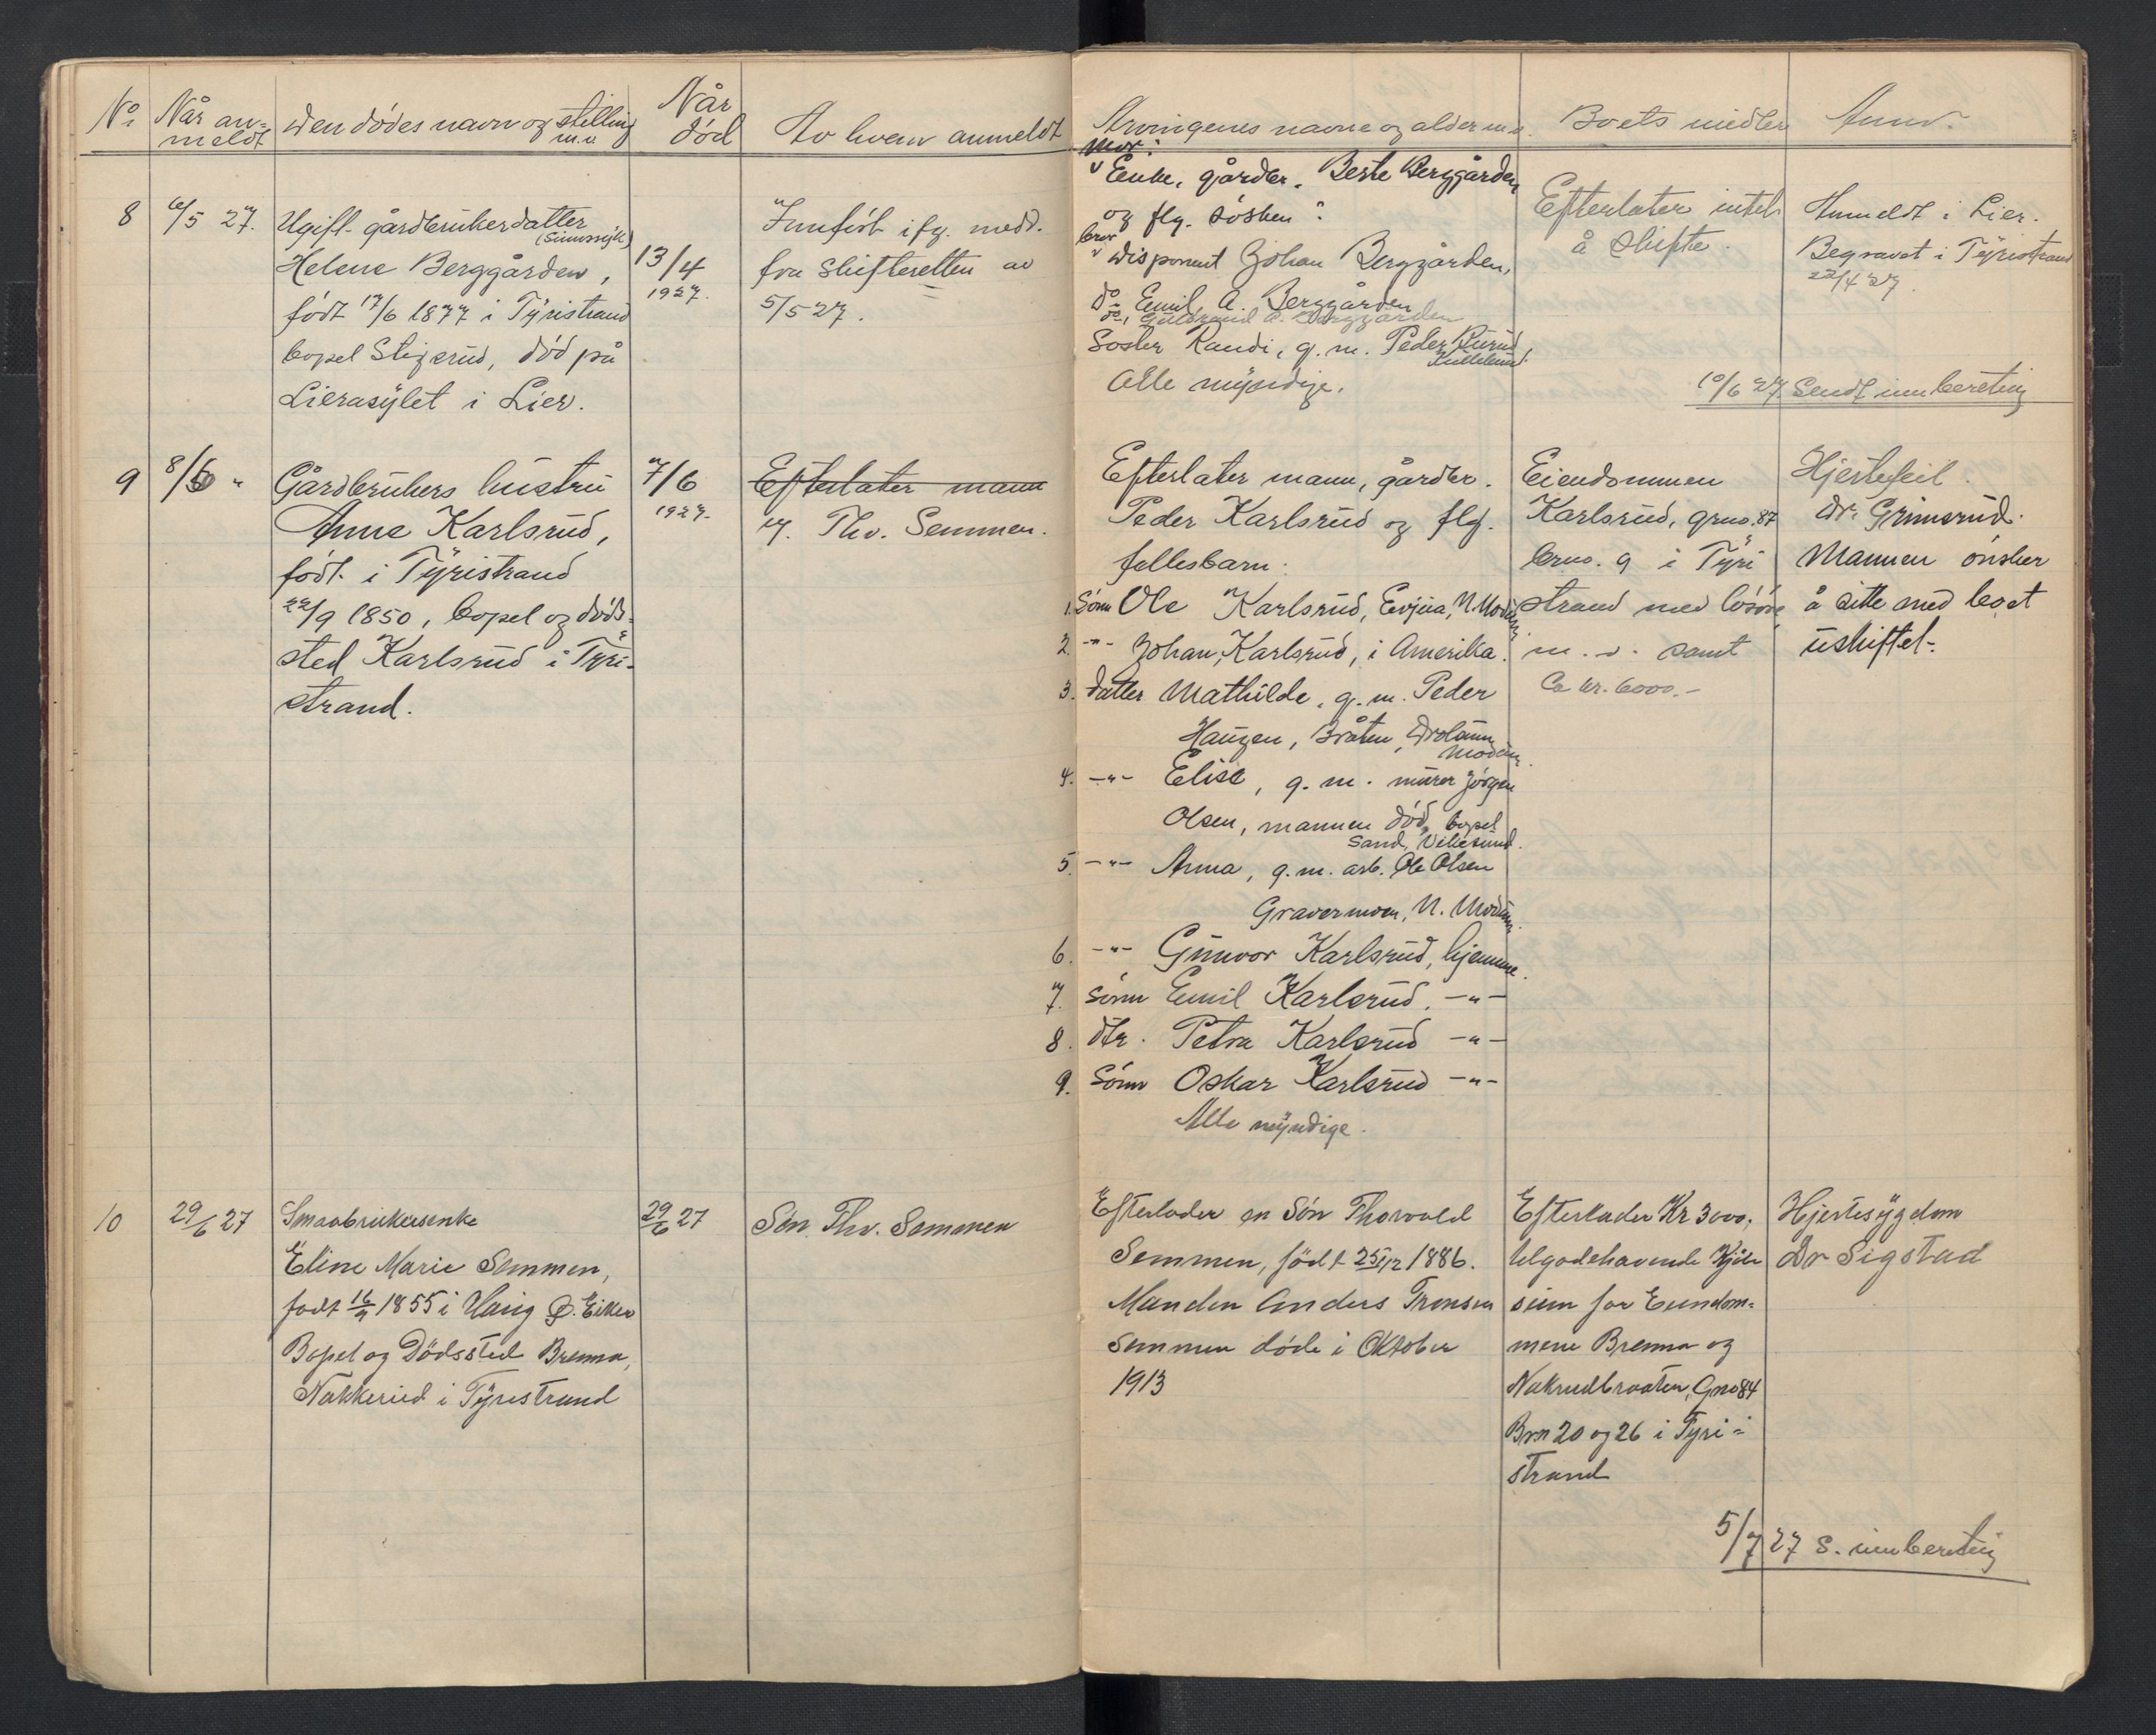 No. Når an= Den dødes navn og stilling Når Av hvem anmeldt
meldt m.v. død
8 6/5 27. Ugift gårdbrukerdatter
(Sinnssyk)
Helene Berggården, 13/4
født 17/6 1877 i Tyristrand 1927.
bopel Stigerud, død på
Lierasylet i Lier.
Innført ifg. medd.
fra Skifteretten av
5/5 27.
9 8/6 " Gårdbrukers hustru 7/6
Anne Karlsrud, 1927.
født i Tyristrand
22/9 1850, bopel og døds=
sted Karlsrud i Tyri-
strand.
Efterlater mann
Thv. Semmen.
10 29/6 27 Smaabrukersenke 29/6 27 Søn Thv. Semmen
Eline Marie Semmen,
født 16/9 1855 i Haug Ø. Eiker
Bopel og Dødssted Brenna,
Nakkerud i Tyristrand
Arvingenes navne og alder m.v. Boets midler Anm.
Mor:
Enke, gårdbr. Berte Berggården
og flg. søsken:
bror
Disponent Johan Berggården,
do. Emil A. Berggården
do. Guldbrand A. Berggården
Søster Randi, g. m. Peder
Alle myndige.
Efterlater intet
å skifte.
Anmeldt i Lier.
Begravet i Tyristrand
22/4 27.
10/6 27 Sendt innberetning
Efterlater mann, gårdbr.
Peder Karlsrud og flg.
fellesbarn:
1. Sønn Ole Karlsrud, Evjua, N. Modum
2. -"- Johan Karlsrud, i Amerika.
3. datter Mathilde, g. m. Peder
Haugen, Bråten, Drolsum
Modum.
4. -"- Elise, g. m. murer Jørgen
Olsen, mannen død, bopel
Sand, Vikesund.
5. -"- Anna, g. m. arb. Ole Olsen
Gravermoen, N. Modum.
6. -"- Gunvor Karlsrud, hjemme.
7. sønn Emil Karlsrud, -"-
8. dtr. Petra Karlsrud -"-
9. Sønn Oskar Karlsrud -"-
Alle myndige.
Eiendommen
Karlsrud, grno. 87
brno. 9 i Tyri
strand med løsøre
m. v. samt
Ca kr. 6000.-
Hjertefeil.
Dr. Grimsrud.
Mannen ønsker
å sitte med boet
uskiftet.
Efterlader en Søn Thorvald
Semmen, født 25/12 1886.
Manden Anders Tronsen
Semmen døde i Oktober
1913
Efterlader Kr 3000,
tilgodehavende Kjøbe
sum for Eiendom=
mene Brenna og
Nakrudbraaten, Gno 84
Brn 20 og 26 i Tyri=
strand
Hjertesygdom
Dr Sigstad
5/7 27 S. innberetning